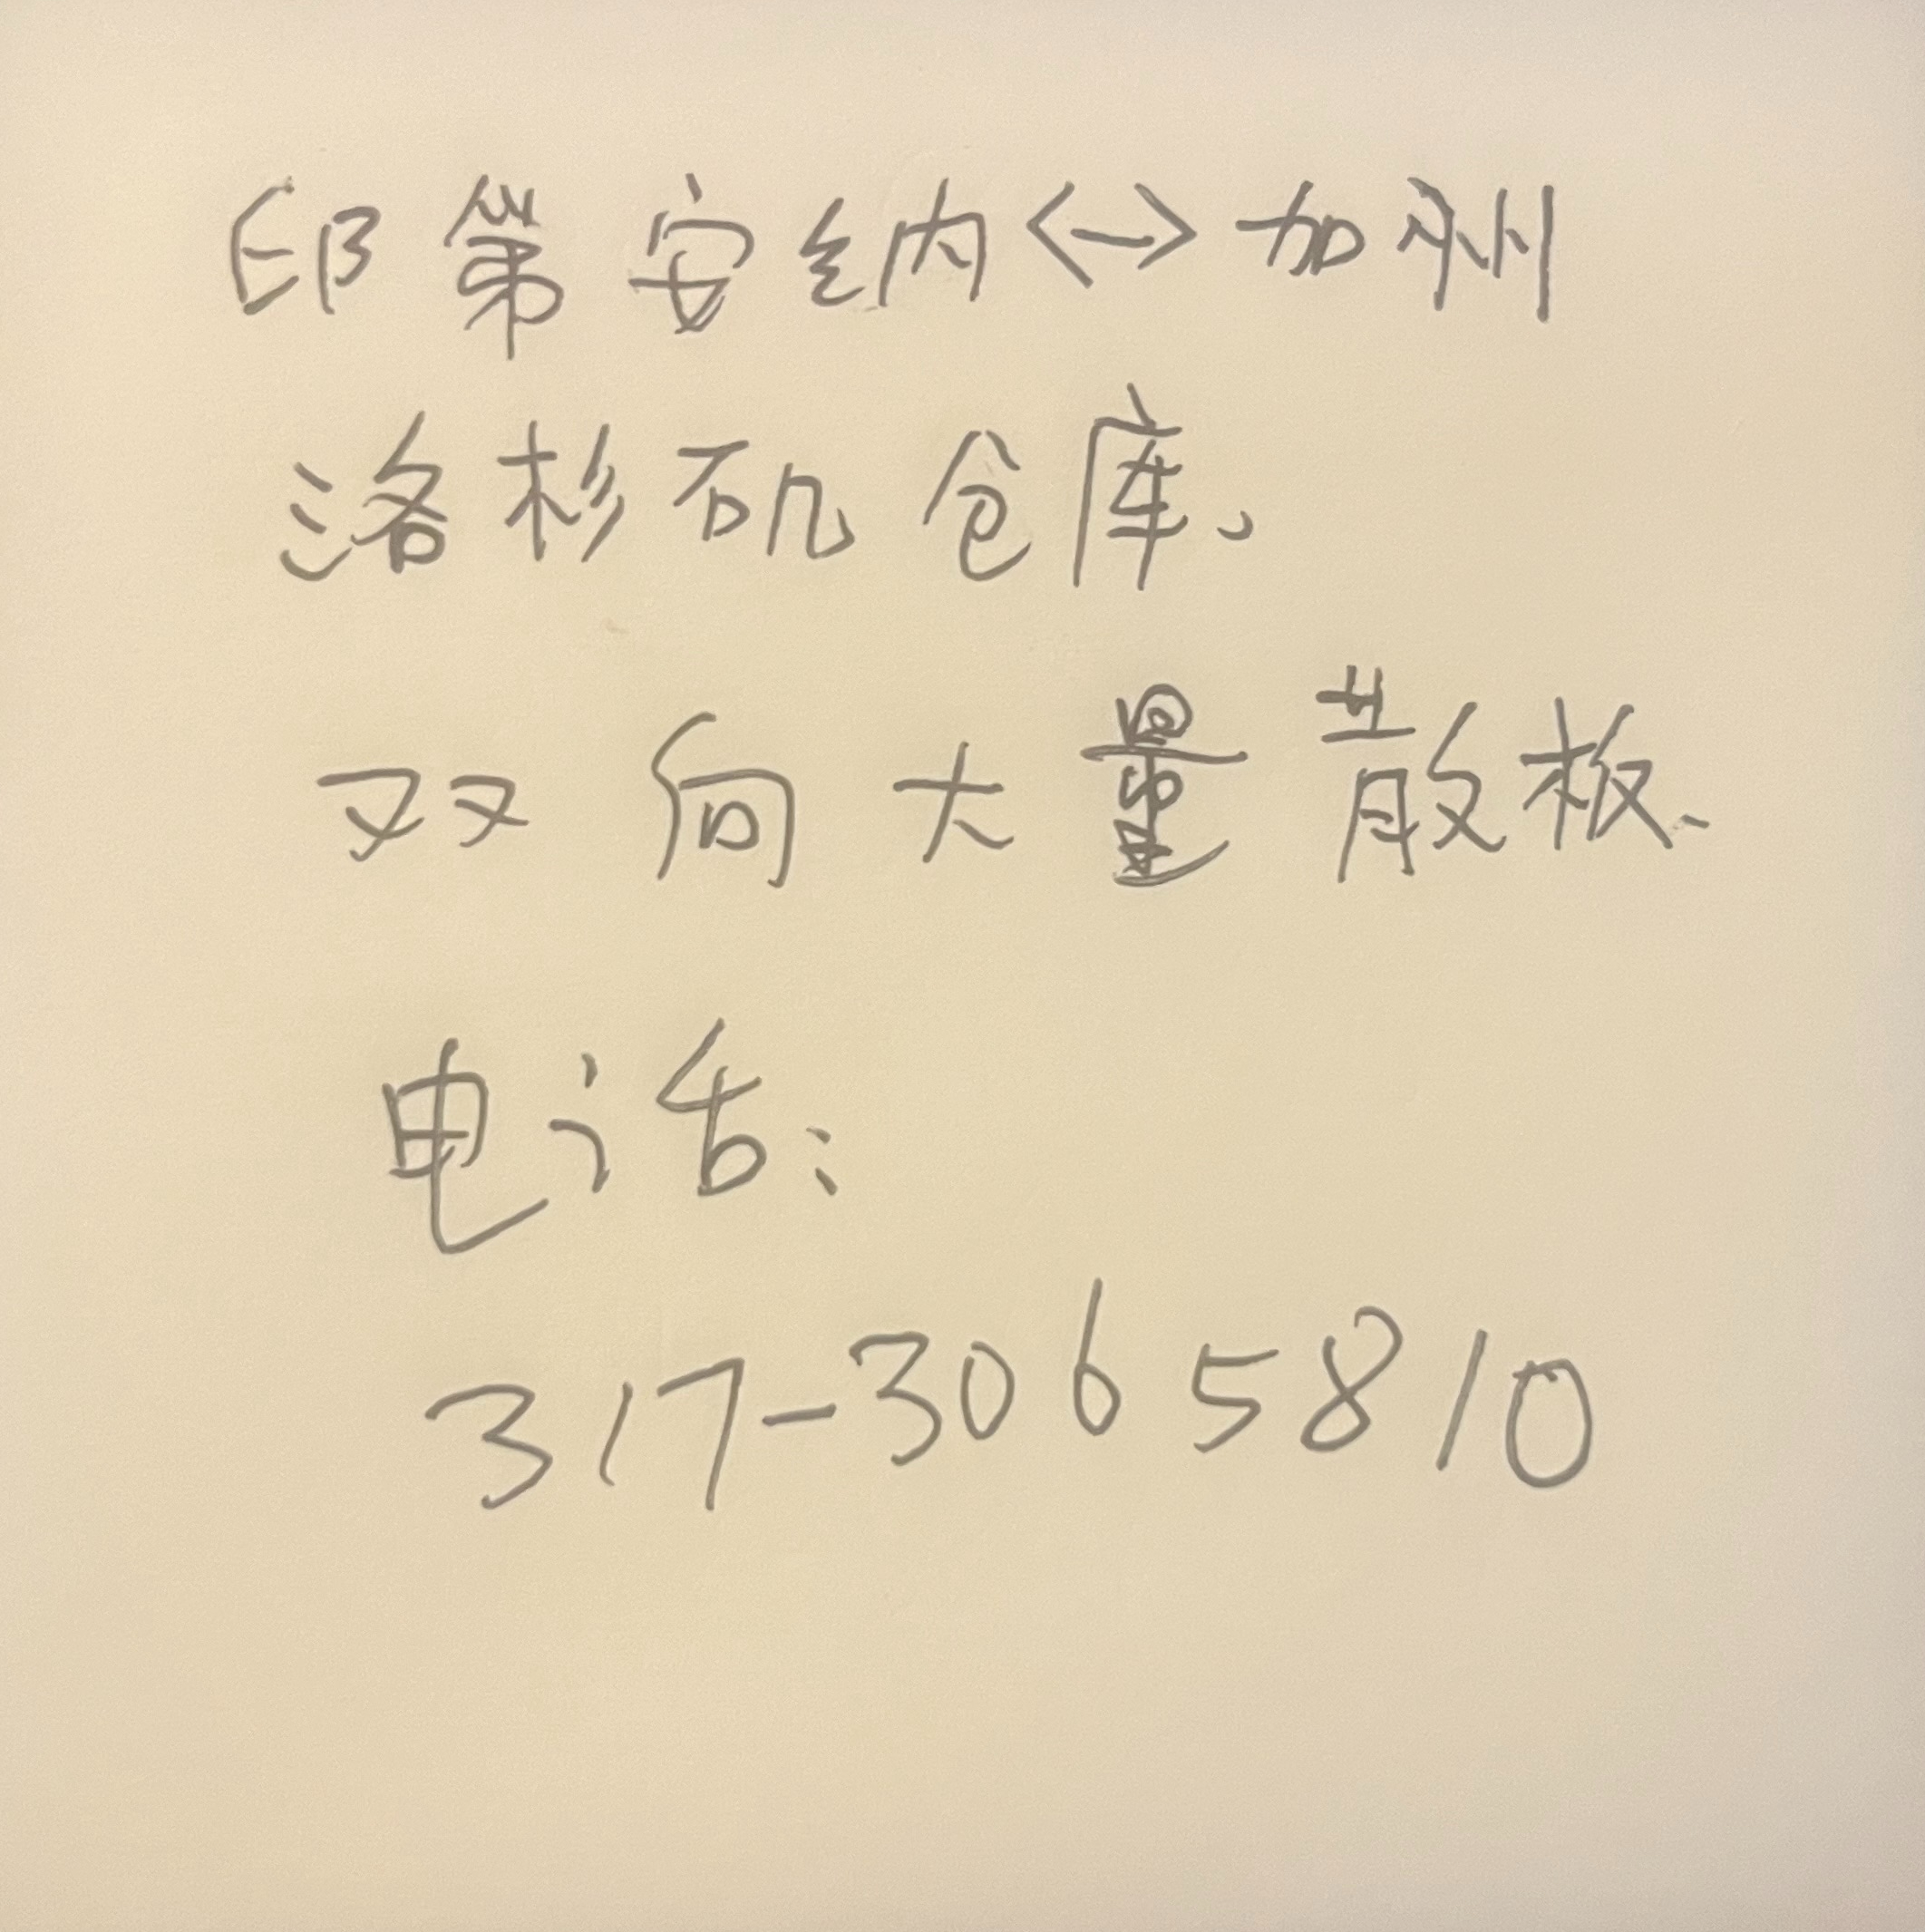 印第安纳<->加州
洛杉矶仓库、
双向大量散板、
电话：
317-3065810